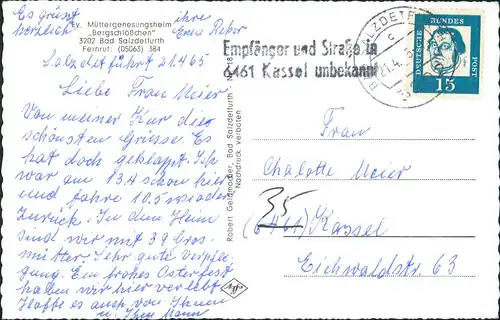 Es grüsst
herzlich
ihre
Erna
Ev. Müttergenesungsheim
„Bergschlößchen"
3202 Bad Salzdetfurth
Fernruf: (05063) 384
Salzdetfurht 21.465
Liebe Frau Meier
Von meiner Kur die
schönsten Grüsse. Es
hat doch geklappt. Ich
war am 13.4 schon hier
und fahre 10.5 wieder
zurück. In dem Heim
sind wir mit 39 Gros.
mütter. Sehr gute Verpfle
gung. Ein frohes Osterfest
haben wir hier verlebt.
Hoffe es auch von Ihnen
u. Ihren Mann
Robert Geldmacher, Bad Salzdetfurth
Nachdruck verboten
Agfa
Empfänger und Straße in
6461 Kassel unbekannt
21.4.
DEUTSCHE BUNDESPOST
15
Frau
Chalotte Meier
35
(6461) Kassel
Eichwaldstr. 63